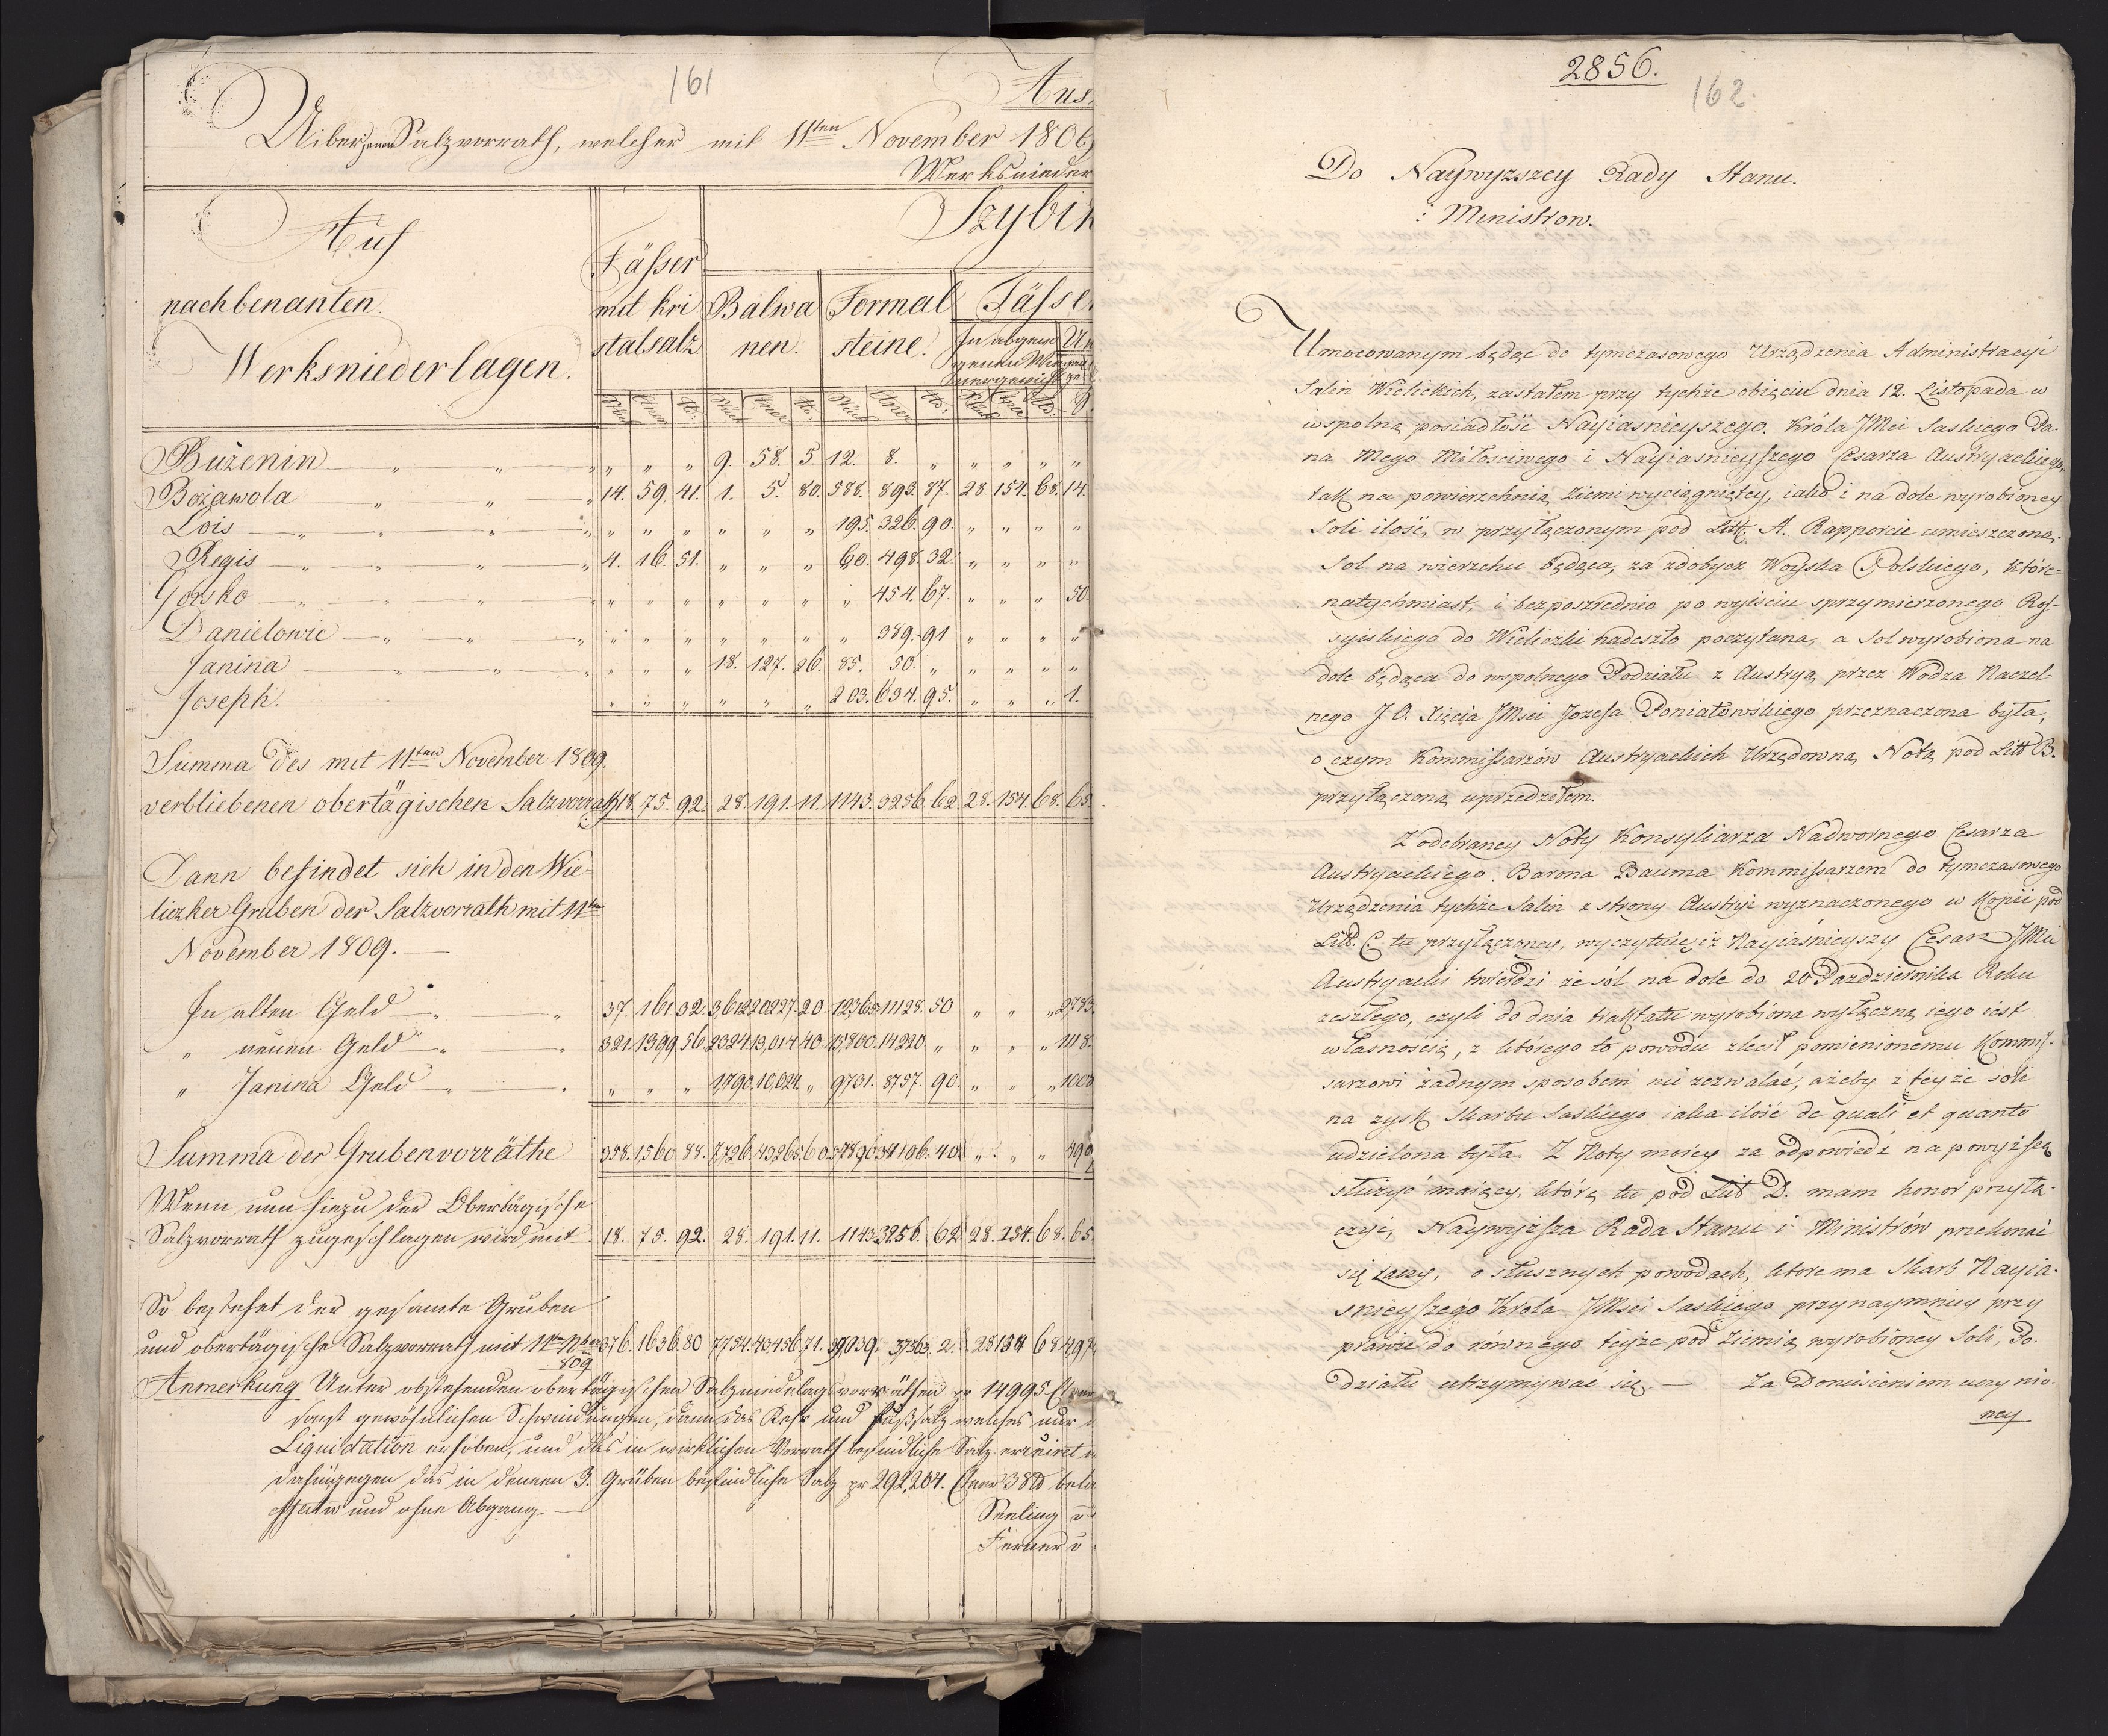 161
Aus
Uiber jenen Salzvorrath, welcher mit 11ten November 1809
Werksnieder
Auf
nachbenanten
Werksniederlagen.
Fässer
mit kri
stalsalz
Szybik
Balwa
nen.
Formal
steine.
Fässer
Buženin " " " " " 9. 58. 5. 12. 8. " " " " "
Božawola " " 14. 59. 41. 1. 5. 80. 588. 893. 87. 28 154. 68. 14.
Lois " " " " " " " " " 195. 326. 90. " " " "
Regis " " " 4. 16. 51. " " " 60. 498. 32. " " " "
Gorsko " " " " " " " " " " 454. 67. " " " 50.
Danielowic " " " " " " " " " 389. 91 " " " "
Janina " " " " " " 18. 127. 26. 85. 50. " " " " "
Joseph. " " " " " " 203. 634. 95. " " " 1.
Summa des mit 11ten November 1809.
verbliebenen obertägischen Salzvorrath 18. 75. 92. 28. 191. 11. 1143. 3256. 62. 28. 154. 68. 65.
Dann befindet sich in den Wie-
liczker Gruben der Salzvorrath mit 11ten
November 1809.
In alten Geld " " 37. 161. 32. 3,612 20227. 20. 12,365. 11128. 50 " " " 2783.
" neuen Geld " " 321. 1399. 56. 2324. 13,014. 40. 15,800. 14220. " " " " 1118.
" Janina Geld " " " " " 1,790. 10,024. " 9731. 8757. 90. " " " 1008
Summa der Grubenvorräthe 358. 1560. 88. 7,726. 43,265. 60. 37896. 34106. 40. " " " 490
Wenn nun hiezu der Obertägische
Salzvorrath zugeschlagen wird mit 18. 75. 92. 28. 191. 11. 1143. 3256. 62. 28. 154. 68. 65.
So bestehet der gesamte Gruben
und obertägische Salzvorrath mit 11ten Nber 376. 1636. 80 7754. 43,456. 71. 39,039. 37363. 2. 28 154 68 497
809
Anmerkung Unter obstehenden obertägischen Salzniederlagsvorräthen pr 14995. Ctner
sonst gewöhnlichen Schwindungen, dann das Kehr und Fußsalz welches nur
Liquidation erhoben, und das in wirklichen Vorrath befindliche Salz eruiret
dahingegen das in denen 3. Gruben befindliche Salz pr 292,204. Ctner 38 lb bela
effectiv und ohne Abgang.
Seeling
Ferner
2856.
162.
Do Naywyzszey Rady Stanu.
i Ministrow.
Umocowanym będąc do tymczasowego Urządzenia Administracyi
Salin Wielickich, zastałem przy tychże obięciu dnia 12. Listopada w
wspolną posiadłość Nayiasnieyszego. Króla JMci Saskiego Pa-
na Mego Miłosciwego i Nayiasnieyszego Cesarza Austryackiego,
tak na powierzchnią Ziemi wyciągniętey, iako i na dole wyrobioney
Soli ilość, w przyłączonym pod Litt. A. Rapporcie umieszczoną.
Sol na wierzchu będąca, za zdobycz Woyska Polskiego, które
natychmiast, i bezposrednio po wyisciu sprzymierzonego Ros-
syiskiego do Wieliczki nadeszło poczytana, a Sol wyrobiona na
dole będąca do wspolnego Podziału z Austryą przez Wodza Naczel
nego J. O. Xięcia JMsci Jozefa Poniatowskiego przeznaczona była,
o czym Kommissarzów Austryackich Urzędowną Notą pod Litt B.
przyłączoną uprzedziłem.
Z odebraney Noty Konsyliarza Nadwornego Cesarza
Austryackiego. Barona Bauma Kommissarzem do tymczasowego
Urządzenia tychże Salin z strony Austryi wyznaczonego w Kopii pod
Litt. C. tu przyłączoney, wyczytuię iz Nayiaśnieyszy Cesarz JMci
Austryacki twierdzi że sól na dole do 20 Pazdziernika Roku
zeszłego, czyli do dnia traktatu wyrobiona wyłączną iego iest
własnością, z którego to powodu zlecił pomienionemu Kommis-
sarzowi żadnym sposobem nie zezwalać, ażeby z teyże soli
na zysk Skarbu Saskiego iaka ilość de quali et quanto
udzielona była. Z Noty moiey za odpowiedź na powyższą
służyć maiącey, którą tu pod Litt D. mam honor przyłą-
czyć, Naywyższa Rada Stanu i Ministrów przekonać
się raczy, o słusznych powodach, które ma Skarb Nayia-
snieyszego Krola JMsci Saskiego przynaymniey przy
prawie do równego teyże pod Ziemią wyrobioney Soli, Po-
działu utrzymywać się. — Za Doniesieniem uczynio-
ney